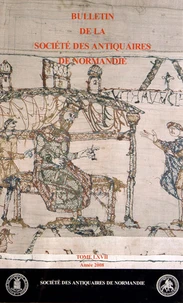 BULLETIN
DE LA
SOCIÉTÉ DES ANTIQUAIRES
DE NORMANDIE
TOME LXVII
Année 2008
SOCIÉTÉ DES ANTIQUAIRES DE NORMANDIE